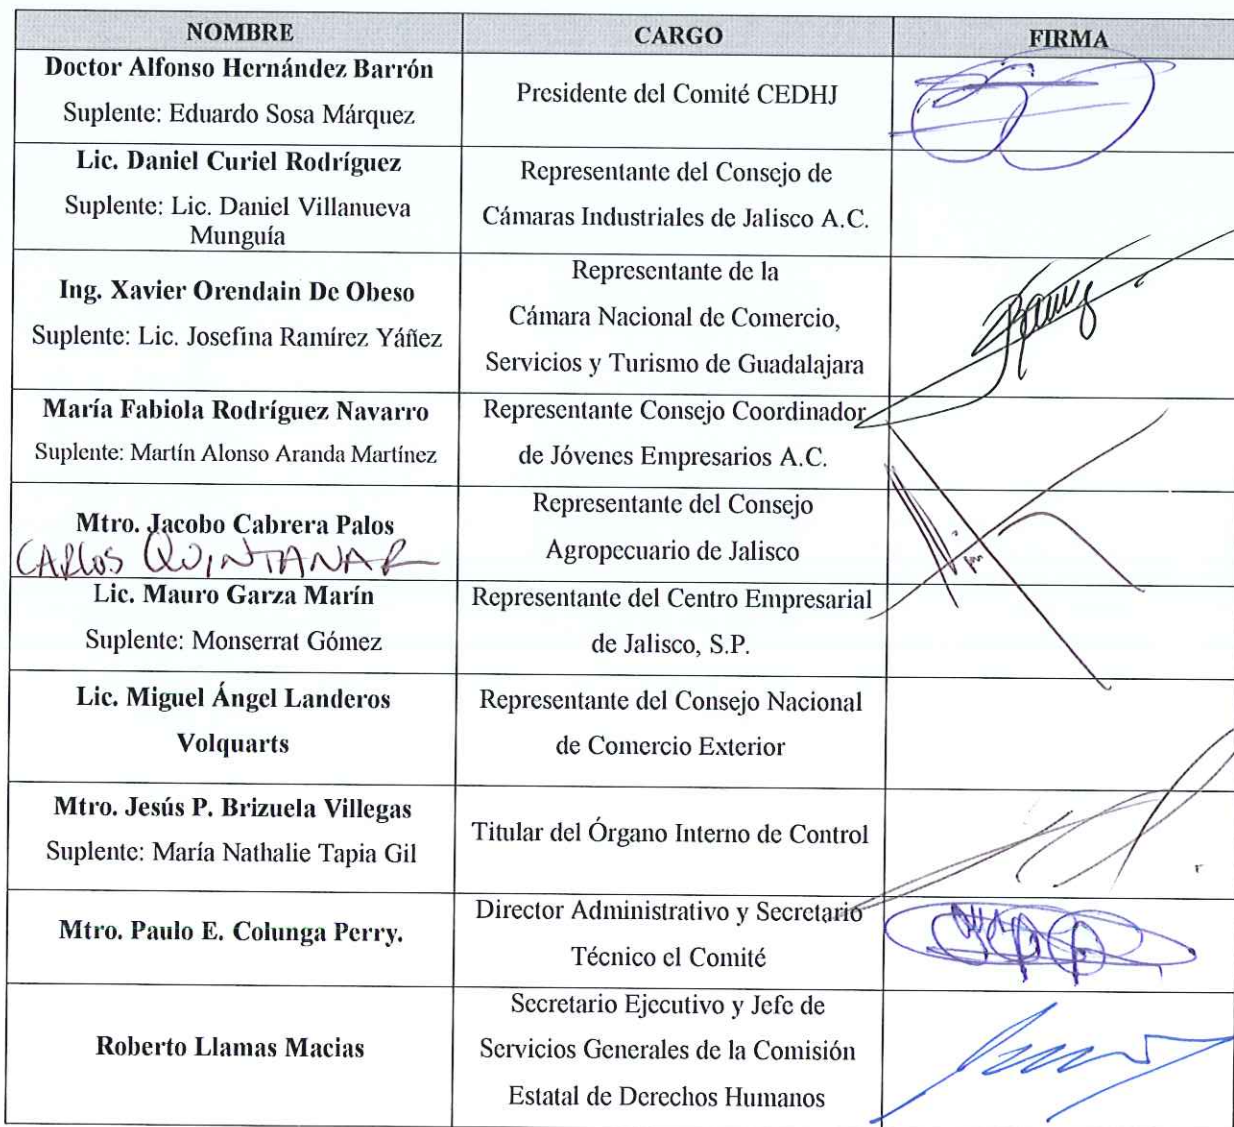 NOMBRE CARGO FIRMA
Doctor Alfonso Hernández Barrón
Suplente: Eduardo Sosa Márquez
Presidente del Comité CEDHJ
Lic. Daniel Curiel Rodríguez
Suplente: Lic. Daniel Villanueva
Munguía
Representante del Consejo de
Cámaras Industriales de Jalisco A.C.
Ing. Xavier Orendain De Obeso
Suplente: Lic. Josefina Ramírez Yáñez
Representante de la
Cámara Nacional de Comercio,
Servicios y Turismo de Guadalajara
María Fabiola Rodríguez Navarro
Suplente: Martín Alonso Aranda Martínez
Representante Consejo Coordinador
de Jóvenes Empresarios A.C.
Mtro. Jacobo Cabrera Palos
CARLOS QUINTANAR
Representante del Consejo
Agropecuario de Jalisco
Lic. Mauro Garza Marín
Suplente: Monserrat Gómez
Representante del Centro Empresarial
de Jalisco, S.P.
Lic. Miguel Ángel Landeros
Volquarts
Representante del Consejo Nacional
de Comercio Exterior
Mtro. Jesús P. Brizuela Villegas
Suplente: María Nathalie Tapia Gil
Titular del Órgano Interno de Control
Mtro. Paulo E. Colunga Perry.
Director Administrativo y Secretario
Técnico el Comité
Roberto Llamas Macias
Secretario Ejecutivo y Jefe de
Servicios Generales de la Comisión
Estatal de Derechos Humanos